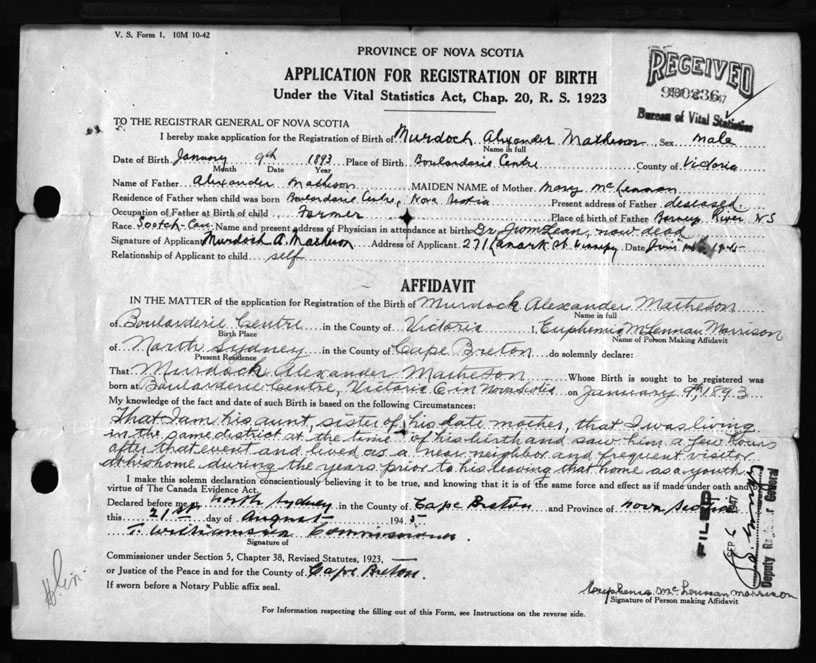 V. S. Form 1. 10M 10-42
PROVINCE OF NOVA SCOTIA
APPLICATION FOR REGISTRATION OF BIRTH
Under the Vital Statistics Act, Chap. 20, R. S. 1923
RECEIVED
Bureau of Vital Statistics
TO THE REGISTRAR GENERAL OF NOVA SCOTIA
I hereby make application for the Registration of Birth of Murdoch Alexander Matheson Sex male
Name in full
Date of Birth January 9th 1893 Place of Birth Boularderie Centre County of Victoria
Month Date Year
Name of Father Alexander Matheson MAIDEN NAME of Mother Mary McLennan
Residence of Father when child was born Boularderie Centre, Nova Scotia Present address of Father deceased.
Occupation of Father at Birth of child Farmer Place of birth of Father River N.S
Race Scotch-Can. Name and present address of Physician in attendance at birth Dr. now dead
Signature of Applicant Murdoch A. Matheson Address of Applicant 271 Lanark St. Winnipeg Date
Relationship of Applicant to child self
AFFIDAVIT
IN THE MATTER of the application for Registration of the Birth of Murdock Alexander Matheson
Name in full
of Boularderie Centre in the County of Victoria I, Euphemia McLennan Morrison
Birth Place Name of Person Making Affidavit
of North Sydney in the County of Cape Breton do solemnly declare:
Present Residence
That Murdock Alexander Matheson Whose Birth is sought to be registered was
born at Boularderie Centre, Victoria Co in Nova Scotia on January 9th, 1893
My knowledge of the fact and date of such Birth is based on the following Circumstances:
That I am his aunt, sister of his late mother, that I was living
in the same district at the time of his birth and saw him a few hours
after that event and lived as a near neighbor and frequent visitor
at his home during the years prior to his leaving that home as a youth.
I make this solemn declaration conscientiously believing it to be true, and knowing that it is of the same force and effect as if made under oath and by
virtue of The Canada Evidence Act.
Declared before me North Sydney in the County of Cape Breton and Province of Nova Scotia
this 21st day of August 194
Commissioner
Signature of
Commissioner under Section 5, Chapter 38, Revised Statutes, 1923,
or Justice of the Peace in and for the County of Cape Breton.
If sworn before a Notary Public affix seal.
Euphemia McLennan Morrison
Signature of Person making Affidavit
For Information respecting the filling out of this Form, see Instructions on the reverse side.
FILED
SEP 6 1947
Deputy Registrar General